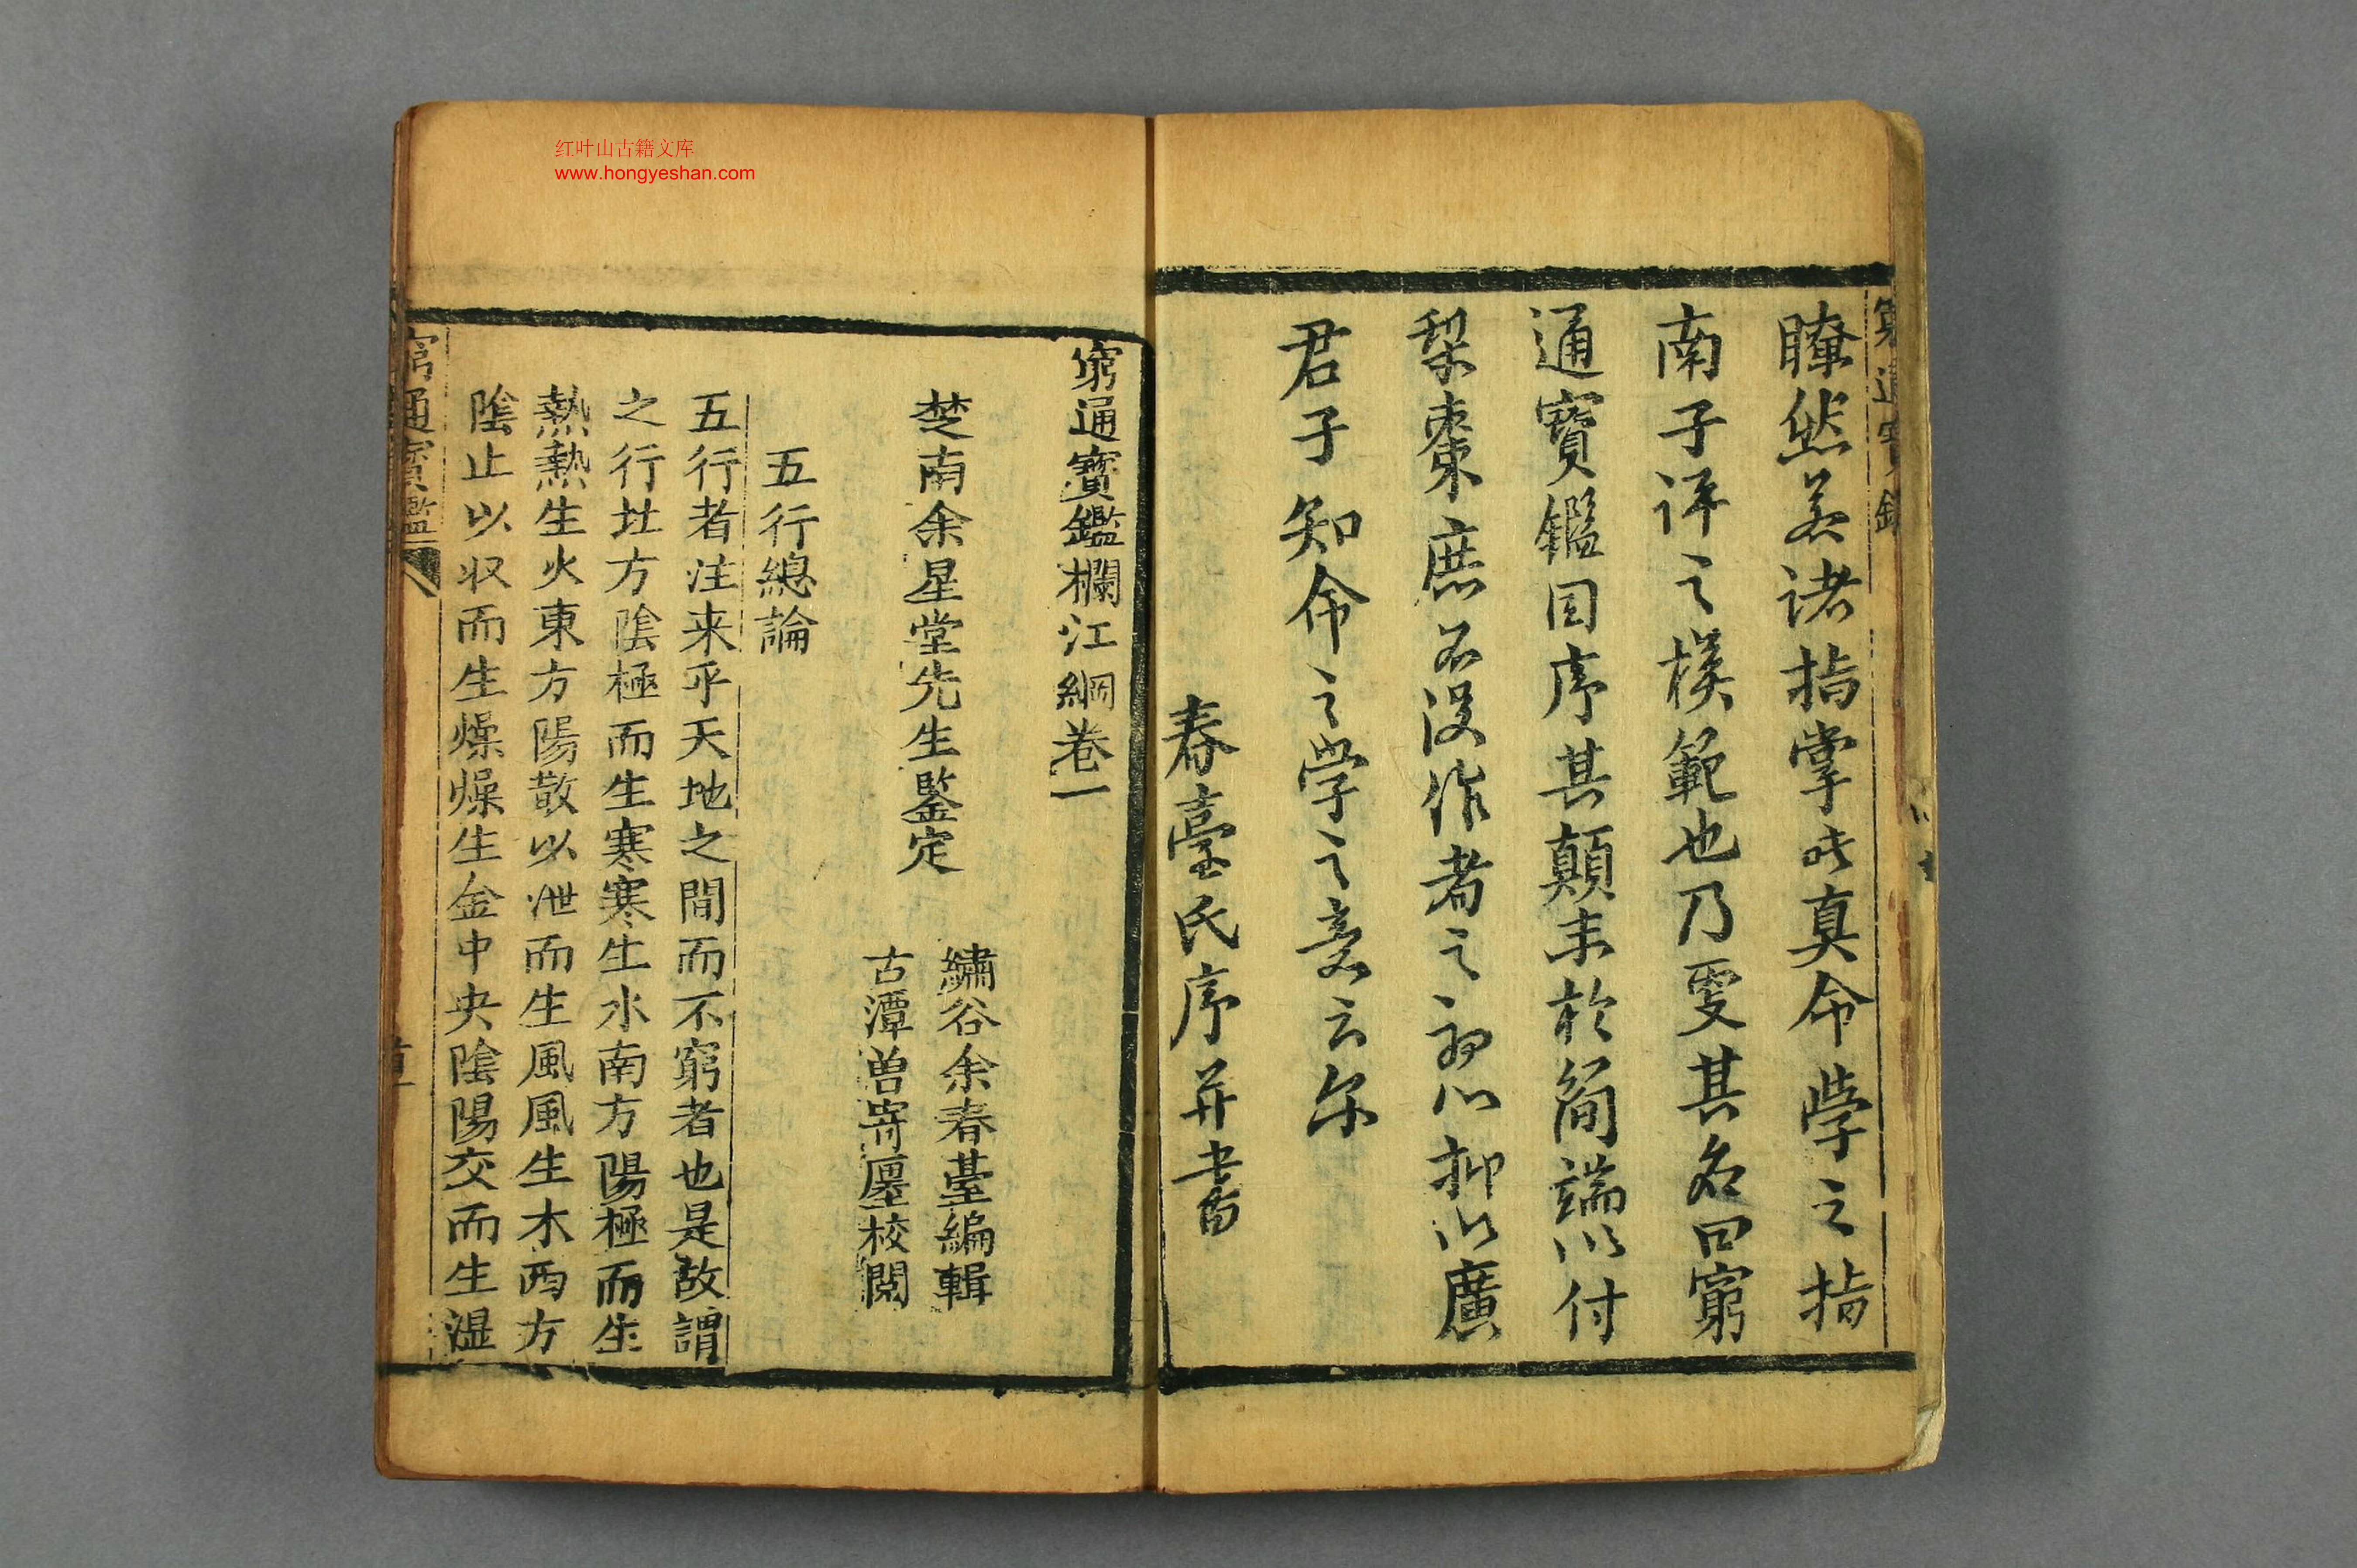 瞭然若諸指掌此真命學之指
南子評之模範也乃更其名曰窮
通寶鑑因序其顛末於简端以付
梨棗庶不没作者之初心抑以廣
君子知命之學之意云尔
春臺氏序并書
红叶山古籍文库
www.hongyeshan.com
窮通寶鑑欄江綱卷一
楚南余星堂先生鑒定
繡谷余春臺編輯
古潭曽寄廛校閲
五行總論
五行者注来乎天地之間而不窮者也是故謂
之行北方隂極而生寒寒生水南方陽極而生
熱熱生火東方陽散以泄而生風風生木西方
隂止以収而生燥燥生金中央隂陽交而生湿
窮通寶鑑